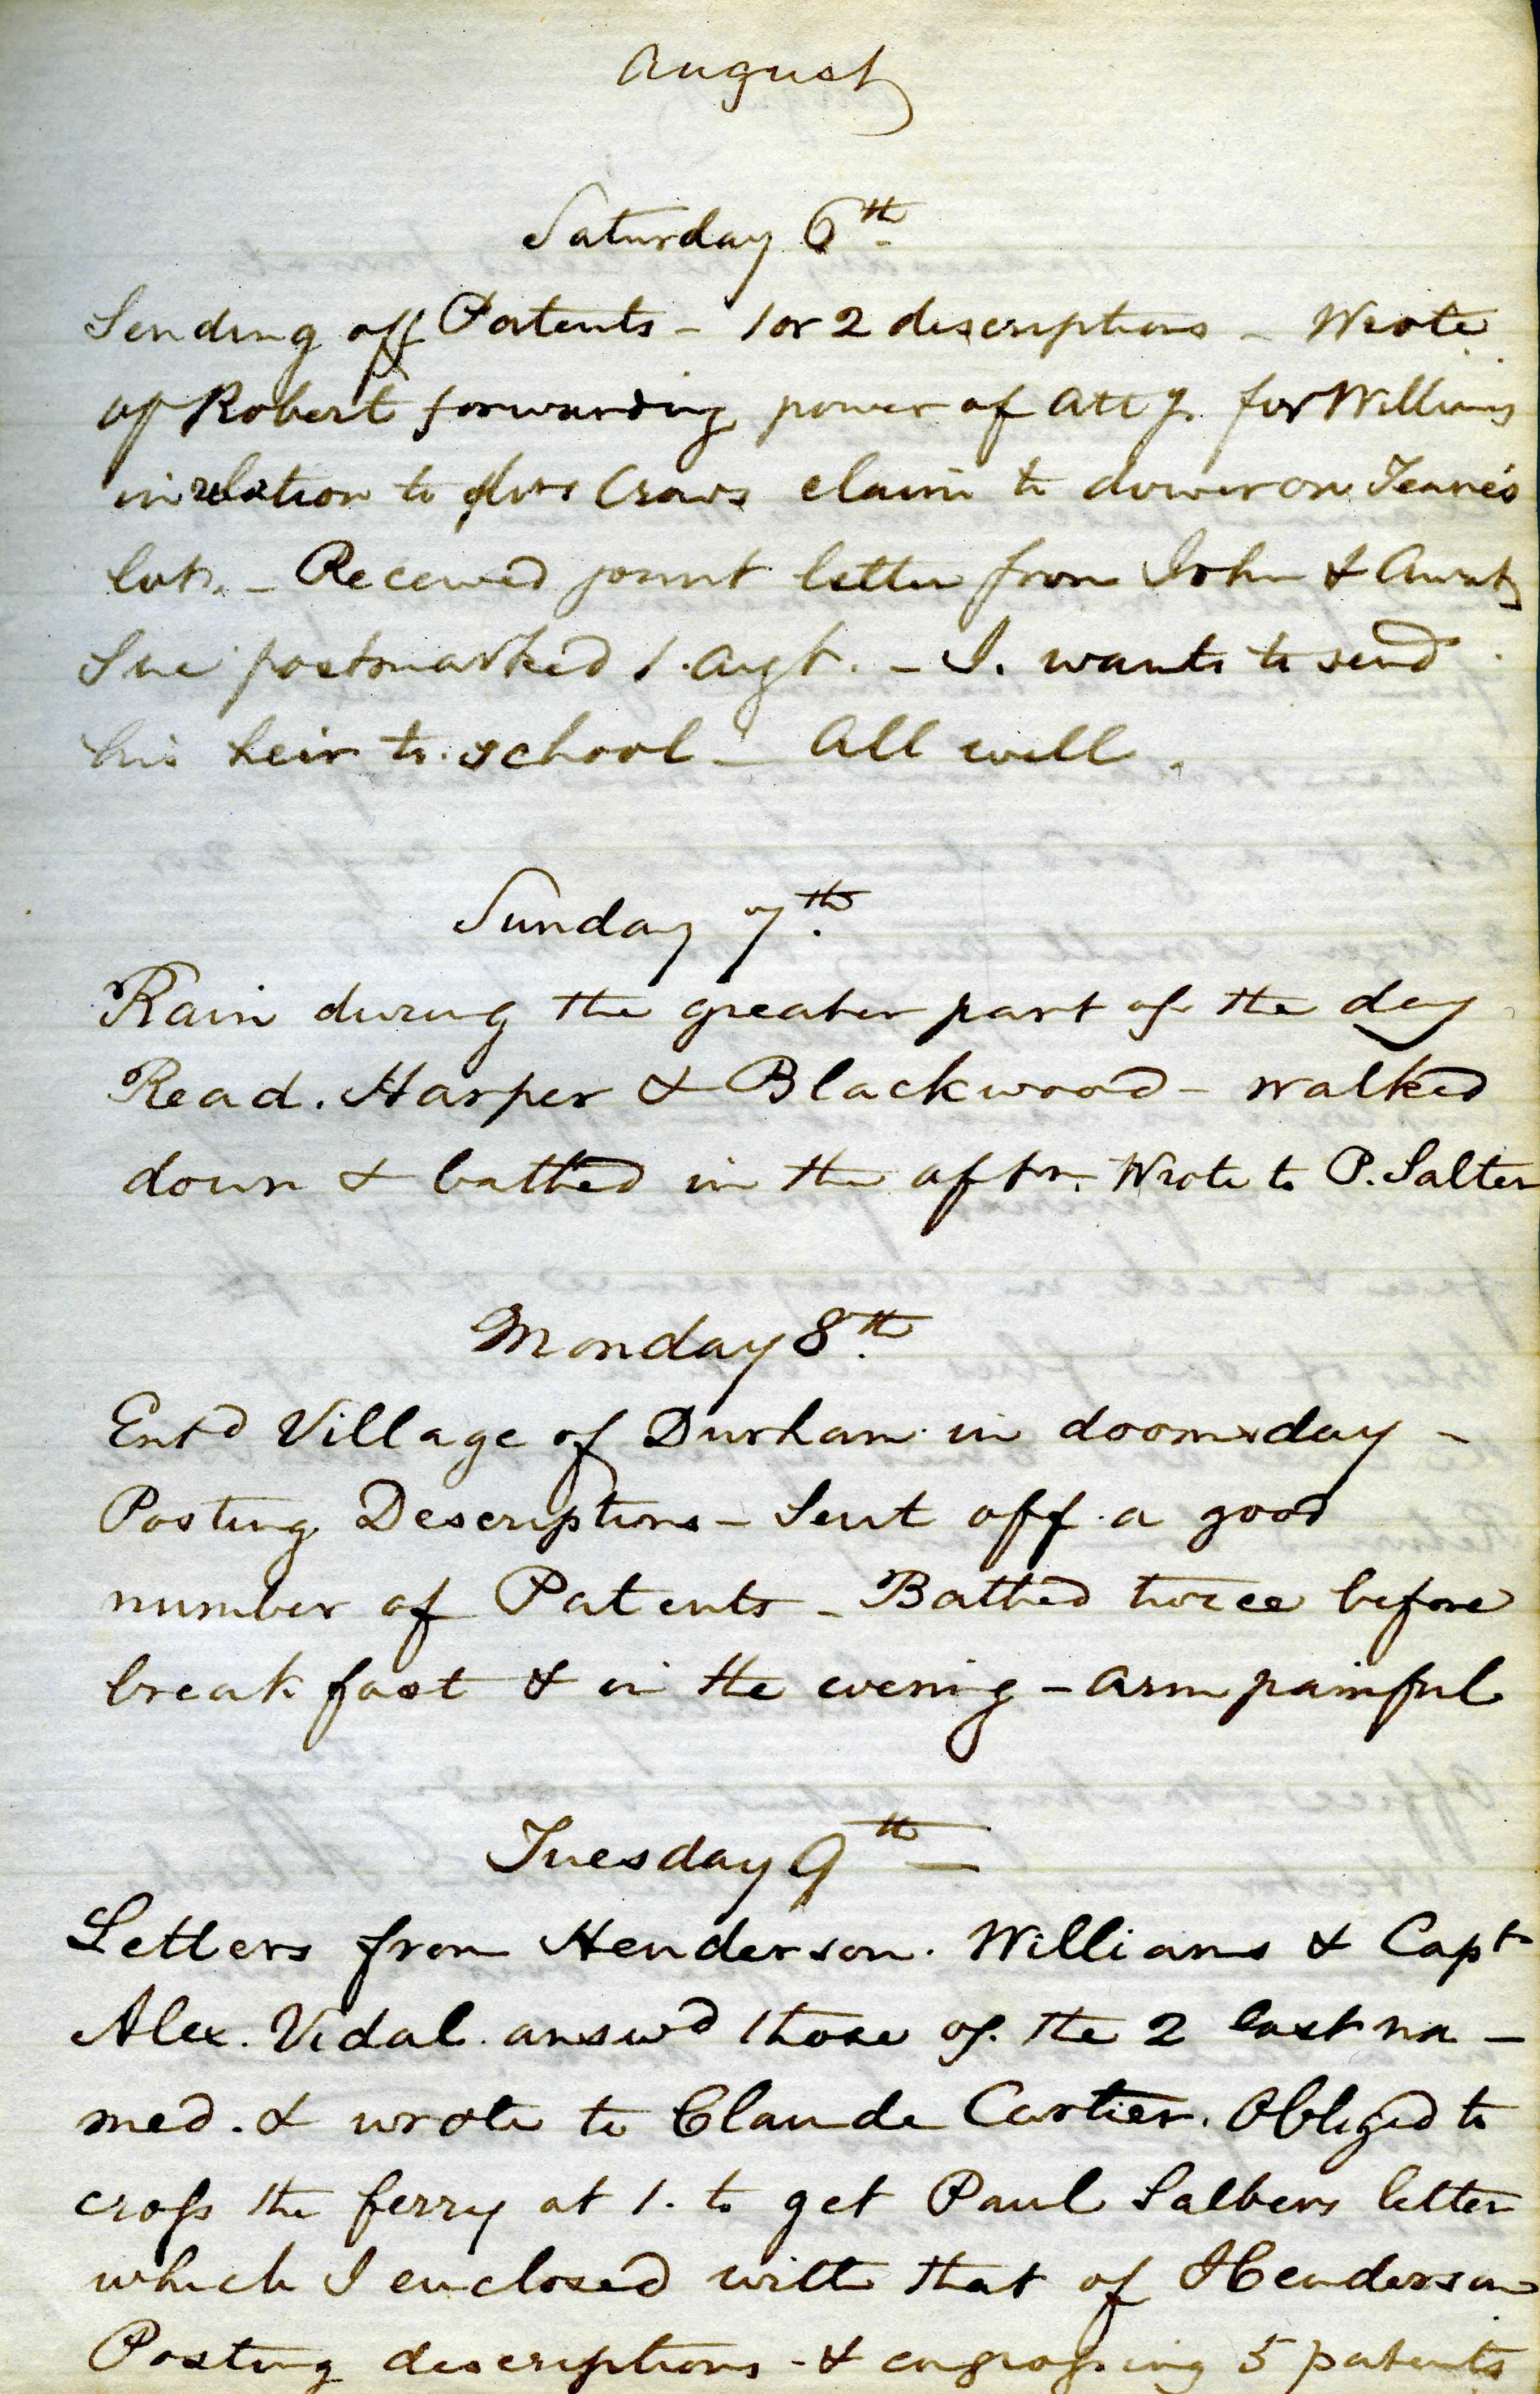 August
Saturday 6th
Sending off Patents - 1 or 2 descriptions - Wrote
Robert forwarding power of atty. for Williams
in relation to Mrs claim to dower on
lots. - Received joint letter from John & Aunt
Sue postmarked 1. Augt. - J. wants to send
his heir to school - All well.
Sunday 7th.
Rain during the greater part of the day
Read. Harper & Blackwood - walked
down & bathed in the aftn. Wrote to P. Salter
Monday 8th.
Entd Village of Durham in doomsday -
Posting Descriptions - Sent off a good
number of Patents - Bathed twice before
breakfast & in the evening - arm painful
Tuesday 9th -
Letters from Henderson. Williams & Capt
Alex. Vidal. answd those of the 2 last na -
med. & wrote to Claude Cartier. Obliged to
cross the ferry at 1. to get Paul Salters letter
which I enclosed with that of Henderson
Posting descriptions - & engrossing 5 patents